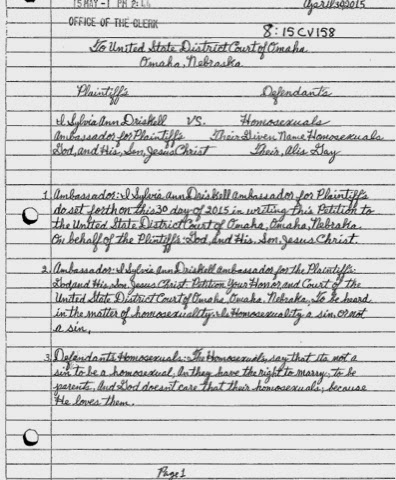 15 MAY -1 PM 2:44
April 30, 2015
OFFICE OF THE CLERK
8:15CV158
To United State District Court of Omaha
Omaha, Nebraska
Plaintiffs Defendants
I Sylvia Ann Driskell VS. Homosexuals
Ambassador for Plaintiffs Their Given Name Homosexuals
God, and His, Son, Jesus Christ Their, Alis Gay
1. Ambassador: I Sylvia Ann Driskell ambassador for Plaintiffs
do set forth on this 30 day of 2015 in writing this Petition to
the United State District Court of Omaha, Omaha, Nebraska.
On behalf of the Plintiffs: God, and His, Son, Jesus Christ.
2. Ambassador: I Sylvia Ann Driskell ambassador for the Plaintiffs:
God and His, Son, Jesus Christ. Petition Your Honor and Court of the
United State District Court of Omaha, Omaha, Nebraska, To be heard
in the matter of homosexuality. Is Homosexuality a sin, or not
a sin.
3. Defendants Homosexuals: The Homosexuals say that its not a
sin to be a homosexual, An they have the right to marry, to be
parents, And God doesnt care that their homosexuals; because
He loves them.
Page 1